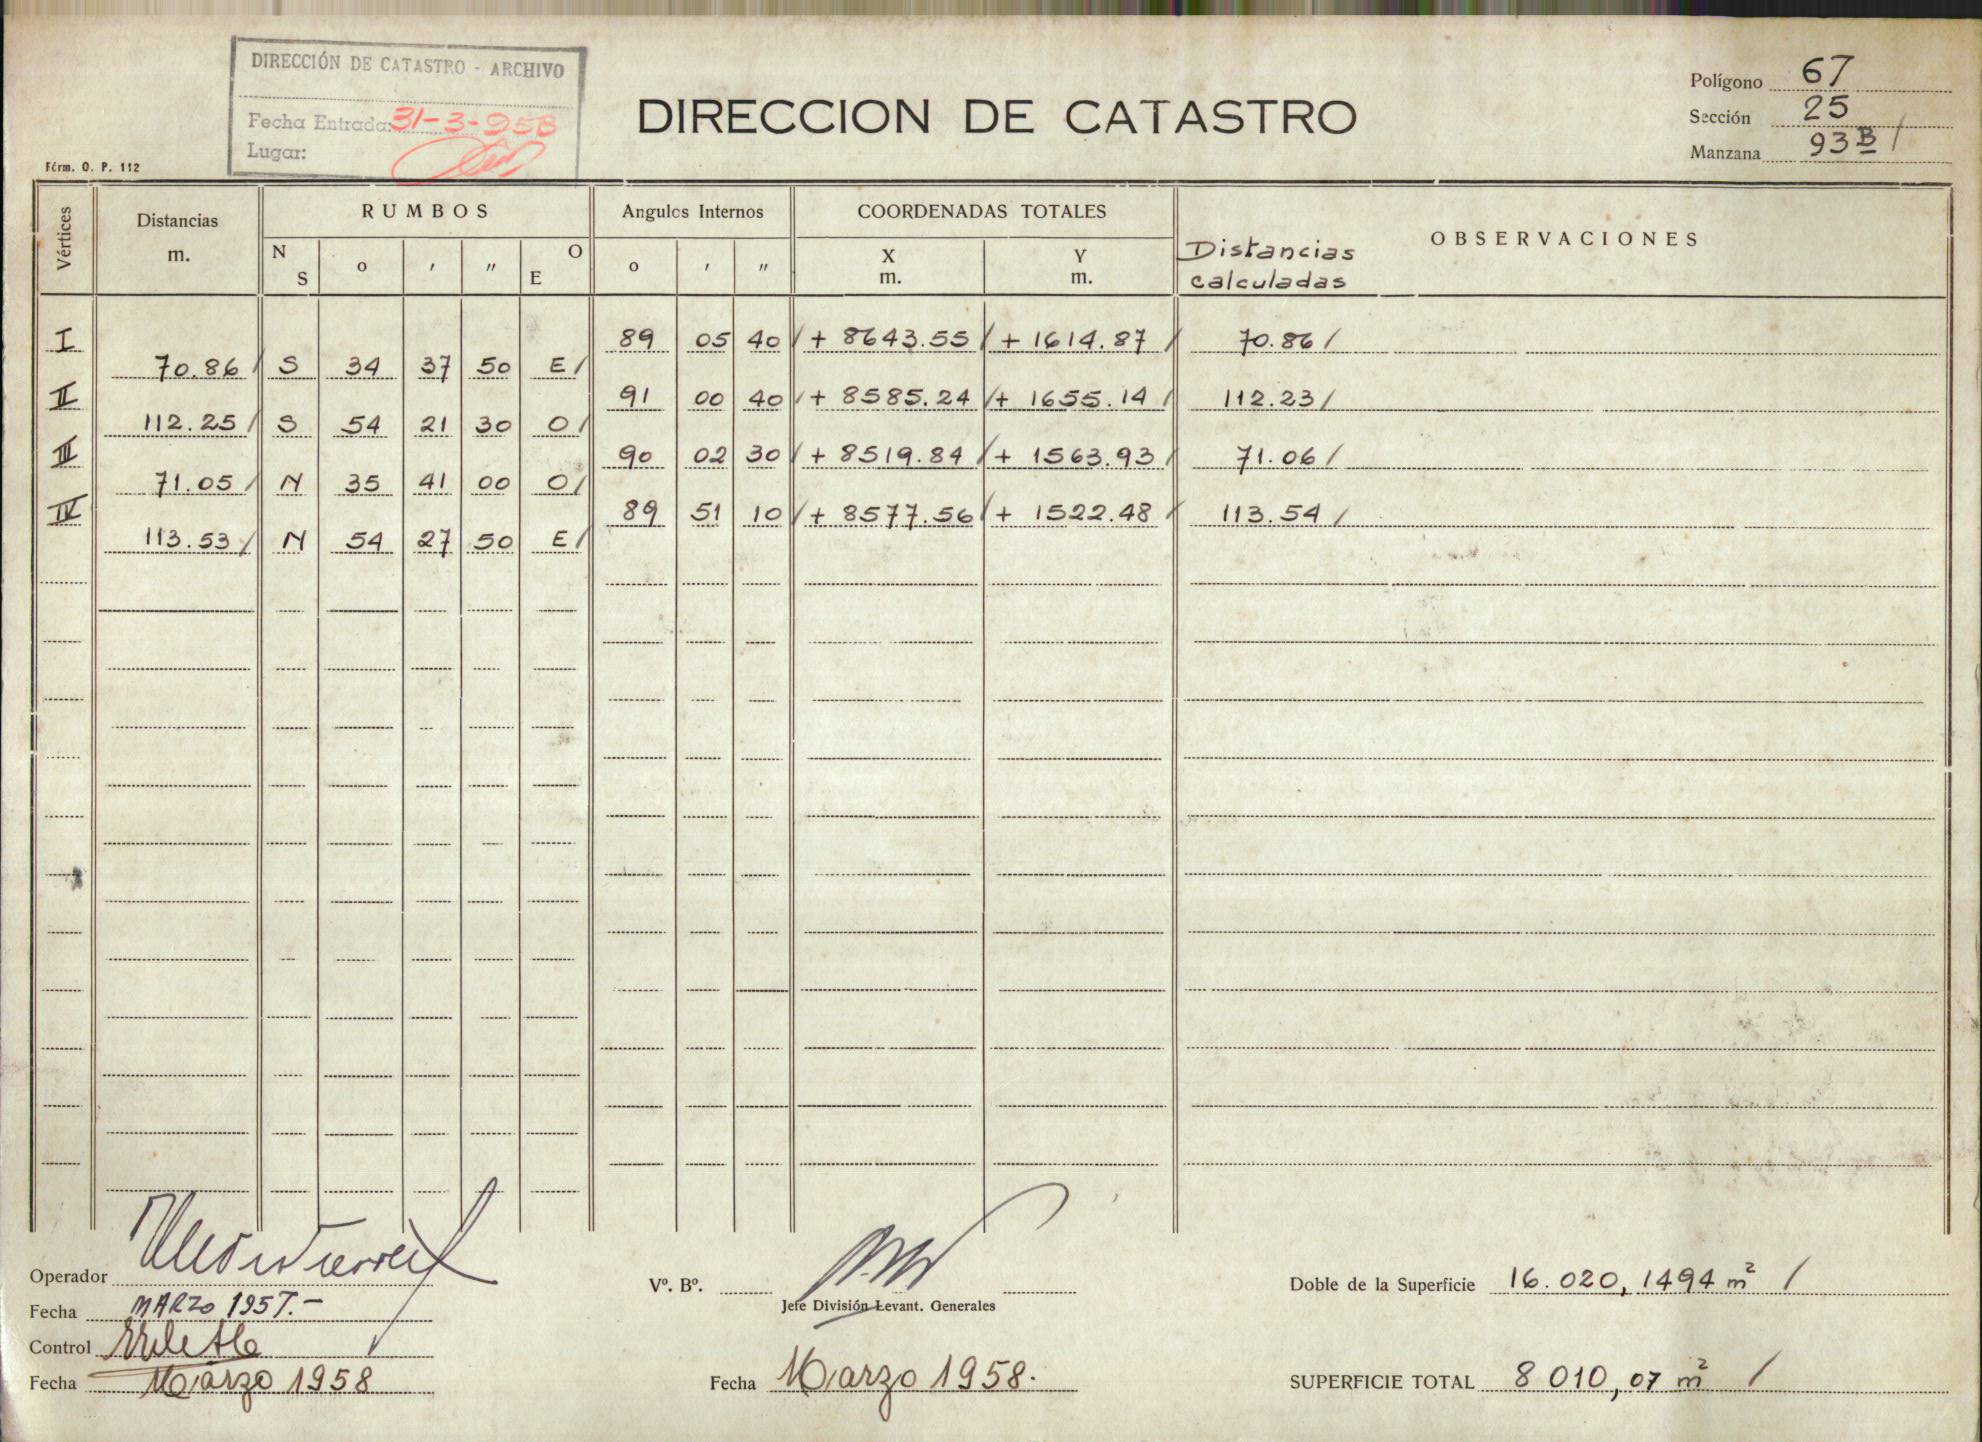 DIRECCIÓN DE CATASTRO - ARCHIVO
Fecha Entrada: 31-3-958
Lugar:
DIRECCION DE CATASTRO
Polígono 67
Sección 25
Manzana 93 B /
Fórm. O. P. 112
Vértices Distancias m. RUMBOS N S o ′ ″ O E Angulos Internos o ′ ″ COORDENADAS TOTALES X m. Y m. Distancias calculadas OBSERVACIONES
I 89 05 40 / + 8643.55 / + 1614.87 / 70.86 /
70.86 / S 34 37 50 E /
II 91 00 40 / + 8585.24 / + 1655.14 / 112.23 /
112.25 / S 54 21 30 O /
III 90 02 30 / + 8519.84 / + 1563.93 / 71.06 /
71.05 / N 35 41 00 O /
IV 89 51 10 / + 8577.56 / + 1522.48 / 113.54 /
113.53 / N 54 27 50 E /
Operador
Fecha MARZO 1957.-
Control
Fecha Marzo 1958
Vº. Bº.
Jefe División Levant. Generales
Fecha Marzo 1958.
Doble de la Superficie 16.020,1494 m² /
SUPERFICIE TOTAL 8 010,07 m² /